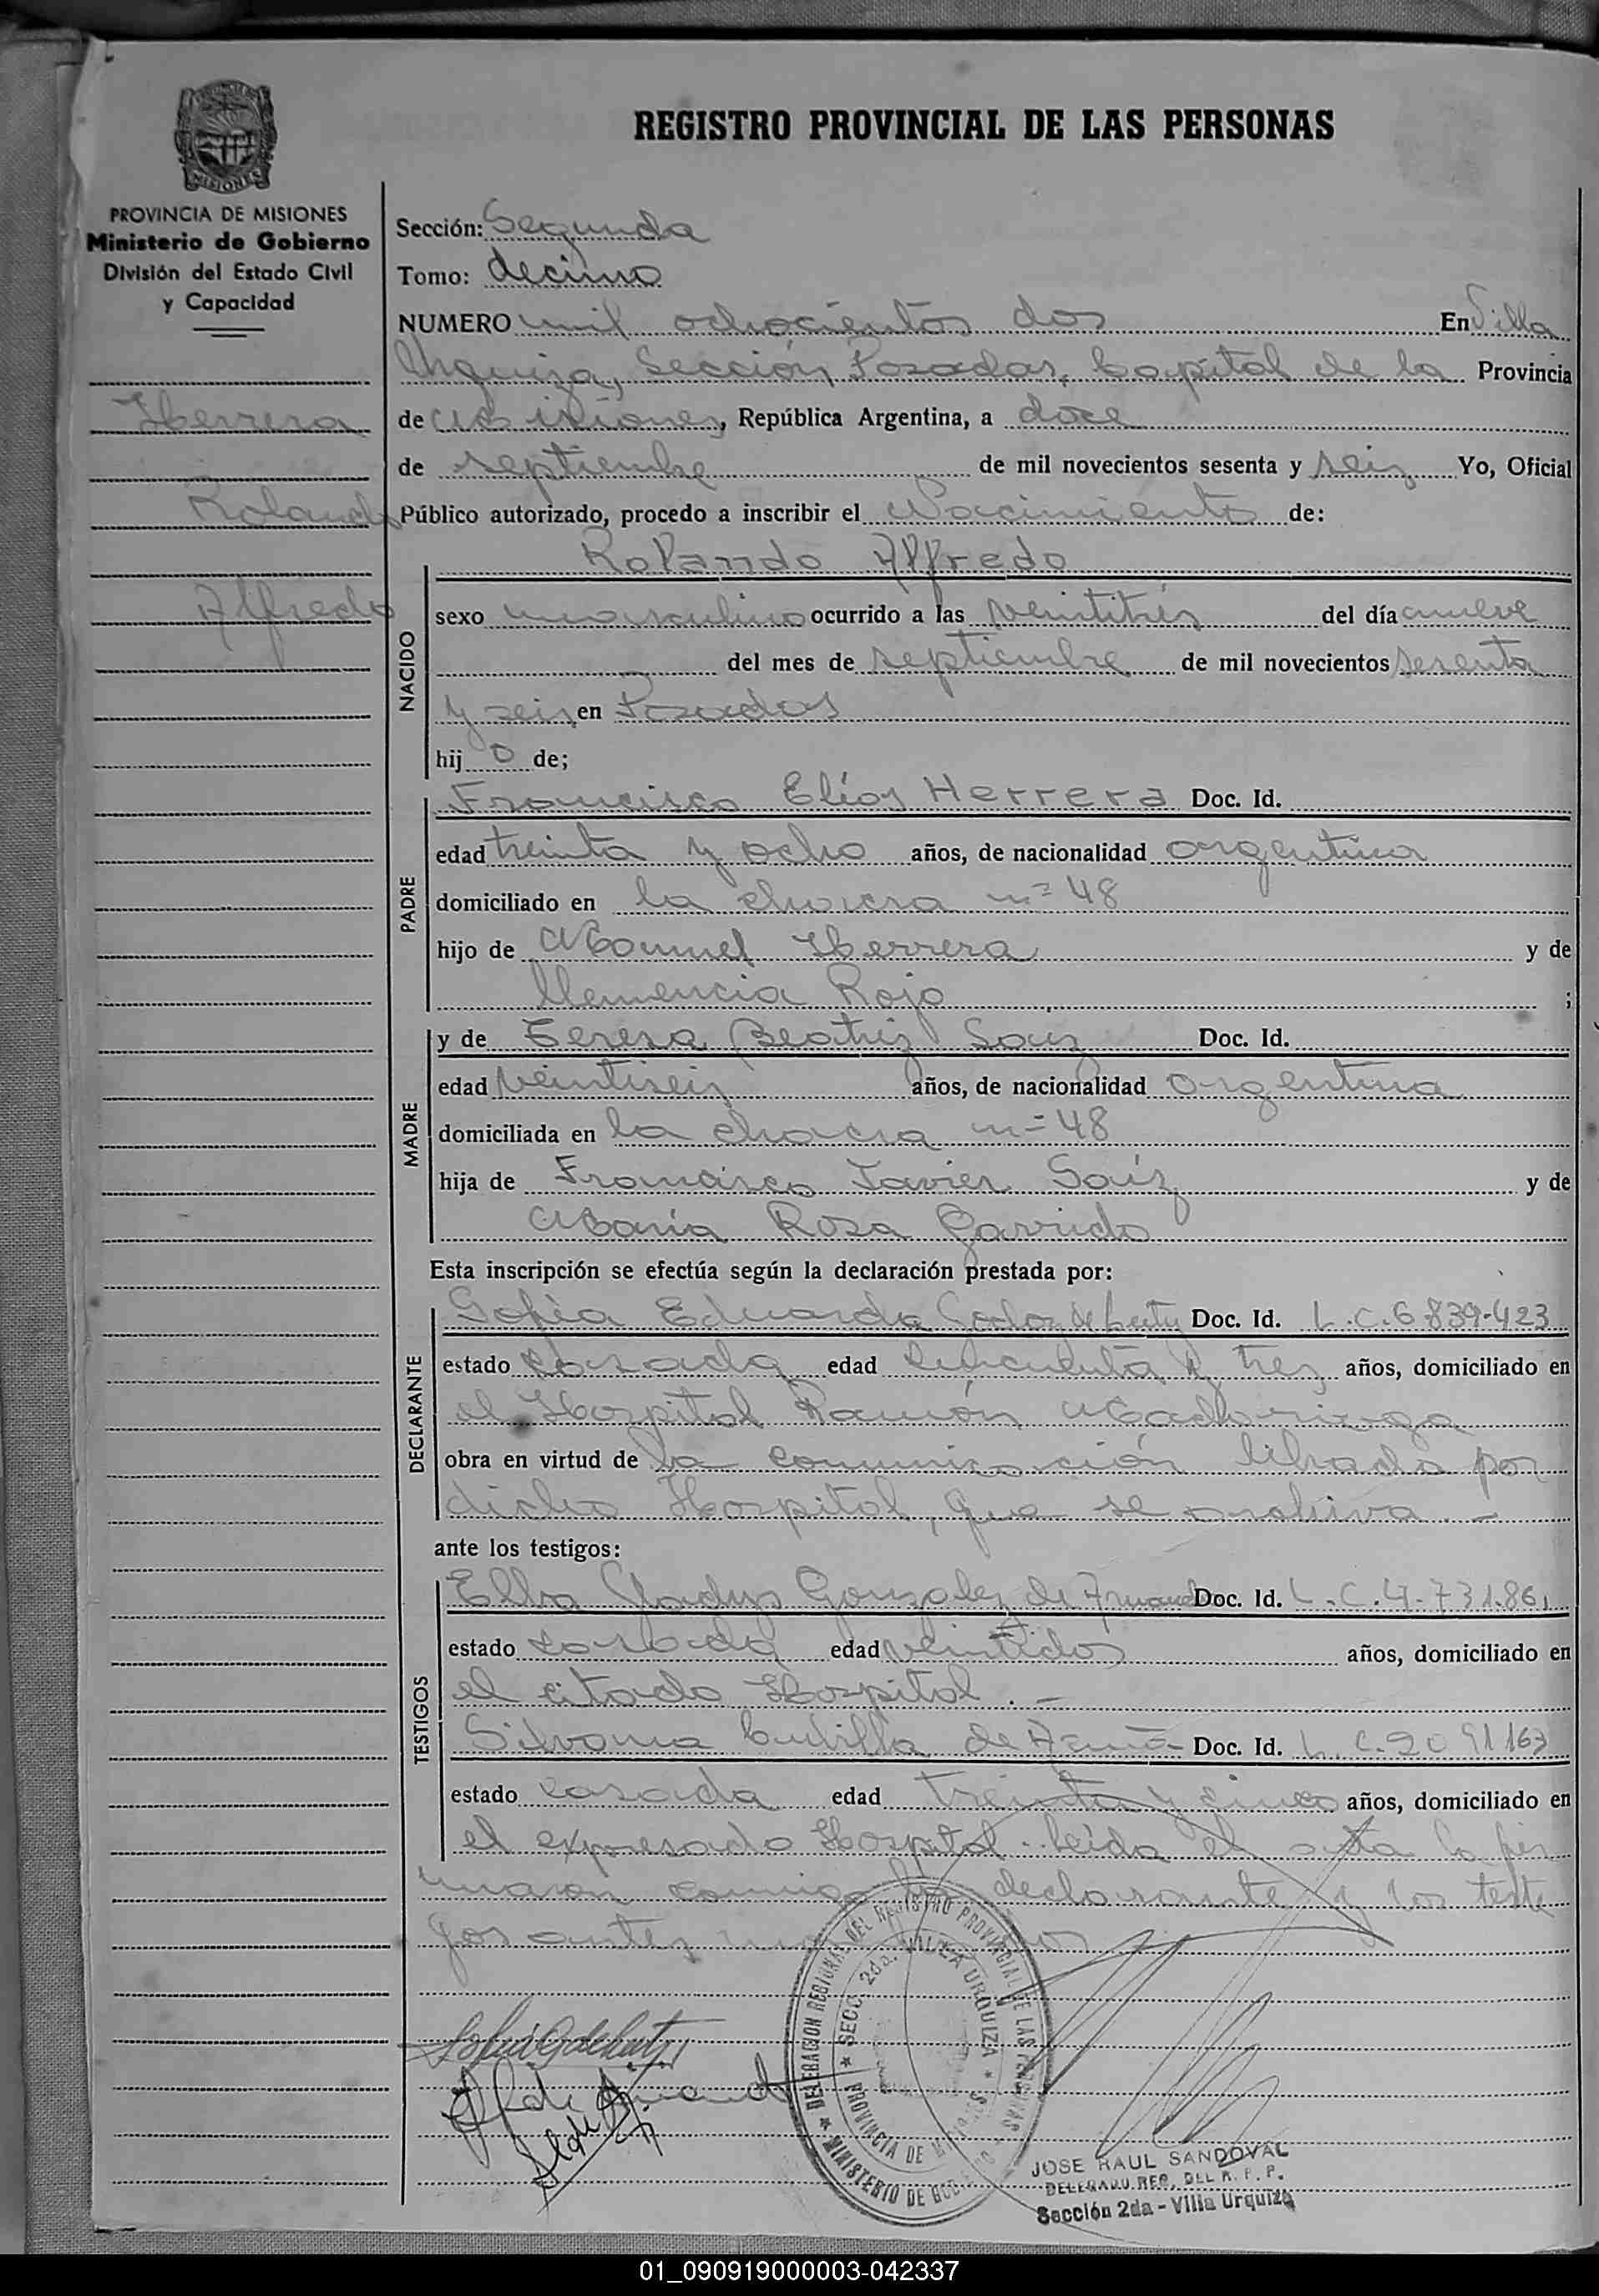 REGISTRO PROVINCIAL DE LAS PERSONAS
MISIONES
PROVINCIA DE MISIONES
Ministerio de Gobierno
División del Estado Civil
y Capacidad
Herrera
Rolando
Alfredo
Sección: Segunda
Tomo: decimo
NUMERO mil ochocientos dos En Villa
Urquiza, Sección Posadas, Capital de la Provincia
de Misiones, República Argentina, a doce
de septiembre de mil novecientos sesenta y seis Yo, Oficial
Público autorizado, procedo a inscribir el Nacimiento de:
NACIDO
Rolando Alfredo
sexo masculino ocurrido a las veintitrés del día nueve
del mes de septiembre de mil novecientos sesenta
y seis en Posadas
hij o de;
PADRE
Francisco Elías Herrera Doc. Id.
edad treinta y ocho años, de nacionalidad argentina
domiciliado en la chacra nº 48
hijo de Manuel Herrera y de
Clemencia Rojo ;
MADRE
y de Teresa Beatriz Saiz Doc. Id.
edad veintiseis años, de nacionalidad argentina
domiciliada en la chacra nº 48
hija de Francisco Javier Saiz y de
María Rosa Garrido
Esta inscripción se efectúa según la declaración prestada por:
DECLARANTE
Sofia Eduarda de Doc. Id. L.C.6839.423
estado casada edad cincuenta y tres años, domiciliado en
el Hospital Ramón Madariaga
obra en virtud de la comunicación librada por
dicho Hospital, que se archiva.-
ante los testigos:
TESTIGOS
Elba Gladys Gonzalez de Doc. Id. L.C.4.731.861
estado casada edad veintidos años, domiciliado en
el citado Hospital.-
Silvana de Doc. Id. L.C.2091163
estado casada edad treinta y cinco años, domiciliado en
el expresado Hospital. Leída el acta la fir
maron conmigo la declarante y los testi
gos antes
DELEGACION REGIONAL DEL REGISTRO PROVINCIAL DE LAS PERSONAS
SECC. 2da. VILLA URQUIZA
PROVINCIA DE
MINISTERIO DE GOBIERNO
JOSE RAUL SANDOVAL
DELEGADO REG. DEL R. P. P.
Sección 2da - Villa Urquiza
01_090919000003-042337